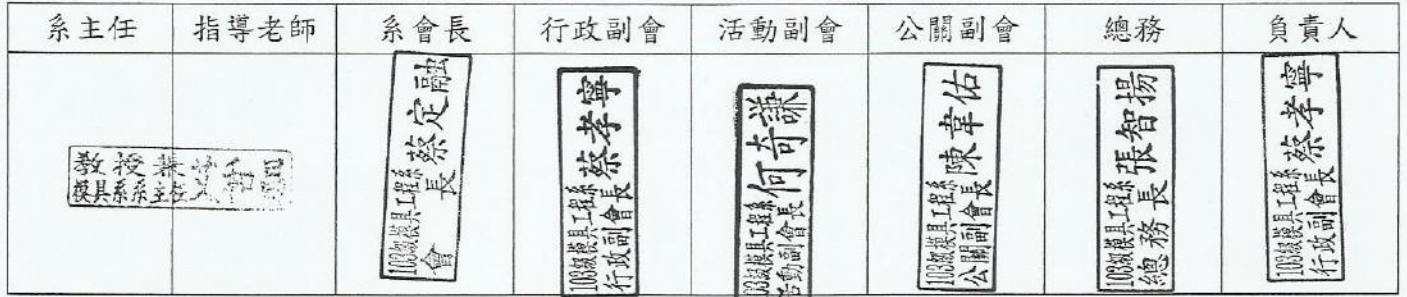 系主任 指導老師 系會長 行政副會 活動副會 公關副會 總務 負責人
教授兼
模具系系主任
103級模具工程系
會長
蔡定融
103級模具工程系
行政副會長
蔡孝寧
03級模具工程系
活動副會長
何奇謙
103級模具工程系
公關副會長
陳韋佑
103級模具工程系
總務長
張智揚
103級模具工程系
行政副會長
蔡孝寧